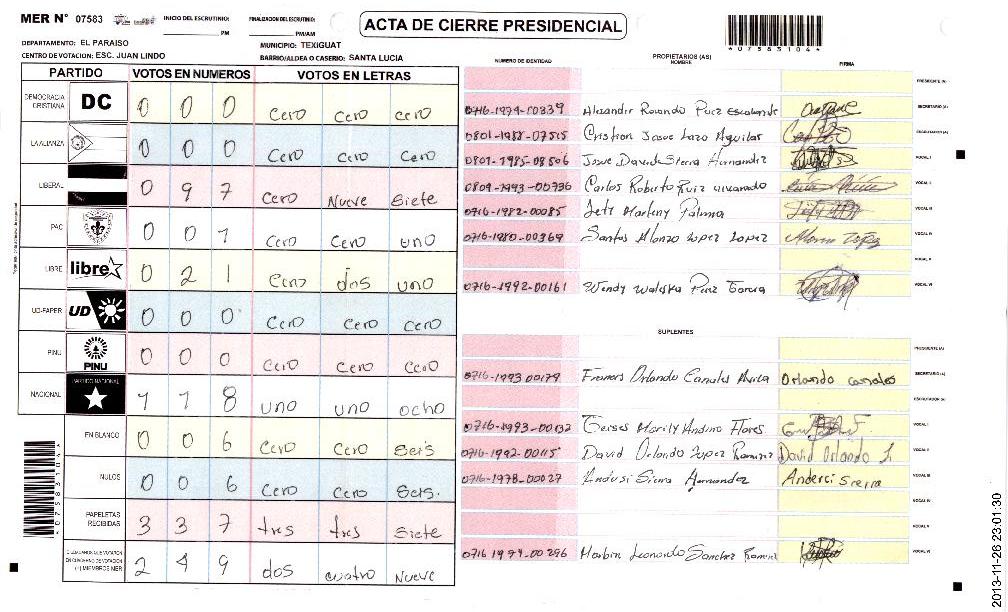 MER N° 07583
INICIO DEL ESCRUTINIO: PM
FINALIZACION DEL ESCRUTINIO: PM/AM
ACTA DE CIERRE PRESIDENCIAL
*07583104*
DEPARTAMENTO: EL PARAISO
MUNICIPIO: TEXIGUAT
CENTRO DE VOTACION: ESC. JUAN LINDO
BARRIO/ALDEA O CASERIO: SANTA LUCIA
PARTIDO VOTOS EN NUMEROS VOTOS EN LETRAS
DEMOCRACIA CRISTIANA DC 0 0 0 Cero Cero cero
LA ALIANZA 0 0 0 Cero Cero Cero
LIBERAL 0 9 7 Cero Nueve Siete
PAC 0 0 1 Cero Cero uno
LIBRE libre 0 2 1 Cero dos uno
UD-FAPER UD 0 0 0 Cero Cero Cero
PINU PINU 0 0 0 Cero Cero Cero
NACIONAL PARTIDO NACIONAL 1 1 8 uno uno ocho
EN BLANCO 0 0 6 Cero Cero Seis
NULOS 0 0 6 Cero Cero Seis.
PAPELETAS RECIBIDAS 3 3 7 tres tres Siete
2 4 9 dos cuatro Nueve
NUMERO DE IDENTIDAD
PROPIETARIOS (AS)
NOMBRE
FIRMA
PRESIDENTE (A)
0716-1979-00339 Alexandir Rolando Perez SECRETARIO (A)
0801-1988-07515 Cristian Josue Lazo Aguilar ESCRUTADOR (A)
0801-1985-08506 Josue David Sierra Hernandez VOCAL I
0809-1993-00736 Carlos Roberto Ruiz VOCAL II
0716-1982-00085 Marleny Palma VOCAL III
0716-1980-00369 Santos Alonzo Lopez Lopez VOCAL IV
VOCAL V
0716-1992-00161 Wendy Waleska VOCAL VI
SUPLENTES
PRESIDENTE (A)
0716-1993-00179 Orlando Canales Orlando canales SECRETARIO (A)
ESCRUTADOR (A)
0716-1993-00132 Marily Andino Flores VOCAL I
0716-1992-00115 David Orlando Lopez Ramirez David Orlando L. VOCAL II
0716-1978-00027 Sierra Hernandez Sierra VOCAL III
VOCAL IV
VOCAL V
0716 1979-00296 Marbin Leonardo Sanchez VOCAL VI
*07583104*
2013-11-26 23:01:30